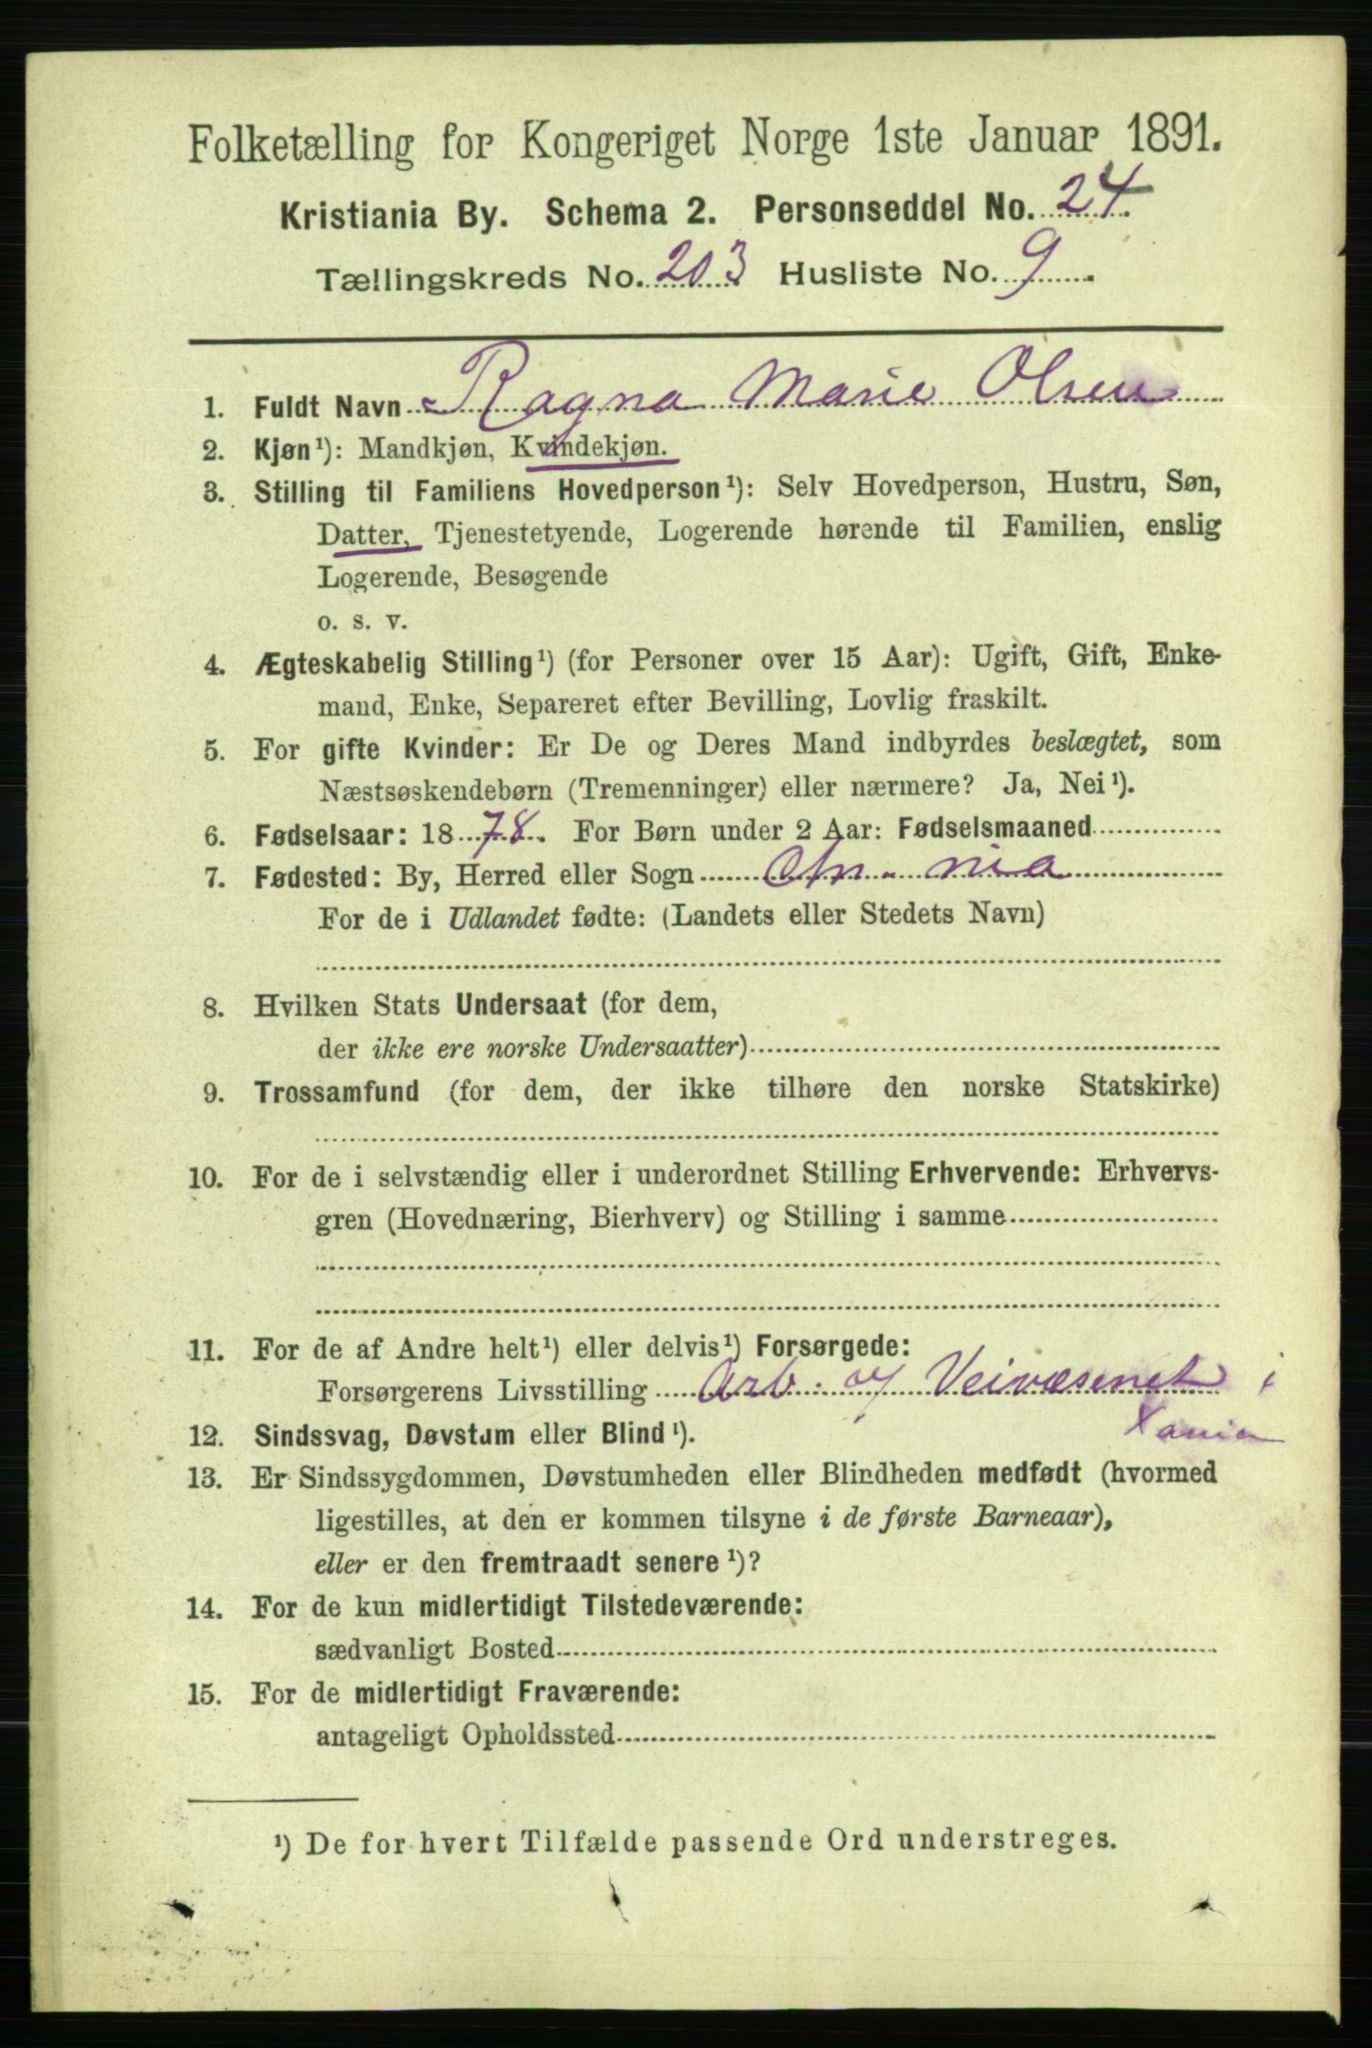 Folketælling for Kongeriget Norge 1ste Januar 1891.
Kristiania By. Schema 2. Personseddel No. 24.
Tællingskreds No. 203 Husliste No. 9
1. Fuldt Navn Ragna Marie Olsen
2. Kjøn¹): Mandkjøn, Kvindekjøn.
3. Stilling til Familiens Hovedperson¹): Selv Hovedperson, Hustru, Søn,
Datter, Tjenestetyende, Logerende hørende til Familien, enslig
Logerende, Besøgende
o. s. v.
4. Ægteskabelig Stilling¹) (for Personer over 15 Aar): Ugift, Gift, Enke-
mand, Enke, Separeret efter Bevilling, Lovlig fraskilt.
5. For gifte Kvinder: Er De og Deres Mand indbyrdes beslægtet, som
Næstsøskendebørn (Tremenninger) eller nærmere? Ja, Nei¹).
6. Fødselsaar: 1878. For Børn under 2 Aar: Fødselsmaaned
7. Fødested: By, Herred eller Sogn Chr.nia
For de i Udlandet fødte: (Landets eller Stedets Navn)
8. Hvilken Stats Undersaat (for dem,
der ikke ere norske Undersaatter)
9. Trossamfund (for dem, der ikke tilhøre den norske Statskirke)
10. For de i selvstændig eller i underordnet Stilling Erhvervende: Erhvervs-
gren (Hovednæring, Bierhverv) og Stilling i samme
11. For de af Andre helt¹) eller delvis¹) Forsørgede:
Forsørgerens Livsstilling Arb. af Veivæsenet i
Xania
12. Sindssvag, Døvstum eller Blind¹).
13. Er Sindssygdommen, Døvstumheden eller Blindheden medfødt (hvormed
ligestilles, at den er kommen tilsyne i de første Barneaar),
eller er den fremtraadt senere¹)?
14. For de kun midlertidigt Tilstedeværende:
sædvanligt Bosted
15. For de midlertidigt Fraværende:
antageligt Opholdssted
¹) De for hvert Tilfælde passende Ord understreges.